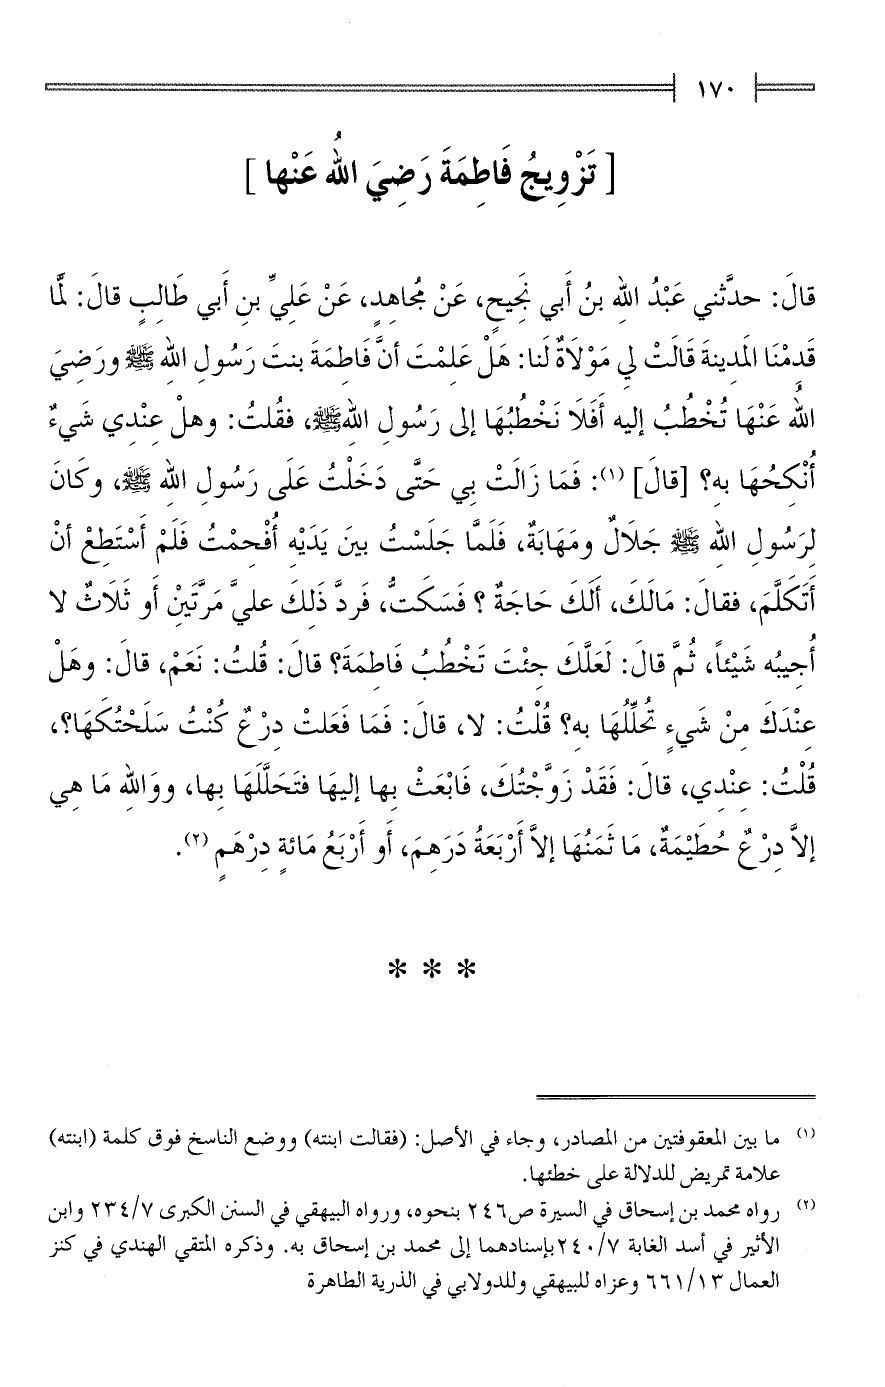 ١٧٠
[ تَزْوِيجُ فَاطِمَةَ رَضِيَ اللهُ عَنْها ]
قالَ: حدَّثني عَبْدُ اللهِ بنُ أَبي نَجِيحٍ، عَنْ مُجاهِدٍ، عَنْ عَلِيِّ بنِ أَبي طَالِبٍ قالَ: لَمَّا
قَدِمْنَا المَدِينةَ قَالَتْ لي مَوْلَاةٌ لَنا: هَلْ عَلِمْتَ أنَّ فَاطِمَةَ بنتَ رَسُولِ اللهِ ﷺ ورَضِيَ
اللهُ عَنْهَا تُخْطَبُ إليه أَفَلَا تَخْطُبُهَا إلى رَسُولِ اللهِ ﷺ، فقُلتُ: وهلْ عِنْدِي شَيءٌ
أُنْكِحُهَا بهِ؟ [قالَ] (١): فَمَا زَالَتْ بي حَتَّى دَخَلْتُ عَلَى رَسُولِ اللهِ ﷺ، وكَانَ
لِرَسُولِ اللهِ ﷺ جَلَالٌ ومَهَابَةٌ، فَلَمَّا جَلَسْتُ بينَ يَدَيْهِ أُفْحِمْتُ فَلَمْ أَسْتَطِعْ أنْ
أَتَكَلَّمَ، فقالَ: مَالَكَ، أَلَكَ حَاجَةٌ ؟ فَسَكَتُّ، فَردَّ ذَلِكَ عليَّ مَرَّتَيْنِ أو ثَلَاثٌ لا
أُجِيبُه شَيْئاً، ثُمَّ قالَ: لَعَلَّكَ جِئْتَ تَخْطُبُ فَاطِمَةَ؟ قالَ: قُلتُ: نَعَمْ، قالَ: وهَلْ
عِنْدَكَ مِنْ شَيءٍ تُحَلِّلُهَا به؟ قُلْتُ: لا، قالَ: فَمَا فَعَلتْ دِرْعٌ كُنْتُ سَلَحْتُكَهَا؟،
قُلْتُ: عِنْدِي، قالَ: فَقَدْ زَوَّجْتُكَ، فَابْعَثْ بها إليهَا فتَحَلَّلَهَا بها، ووَاللهِ مَا هِي
إلاَّ دِرْعٌ حُطَيْمَةٌ، مَا ثَمَنُهَا إلاَّ أَرْبَعَةُ دَرَهِمَ، أو أَرْبَعُ مَائةِ دِرْهَمٍ (٢).
* * *
(١) ما بين المعقوفتين من المصادر، وجاء في الأصل: (فقالت ابنته) ووضع الناسخ فوق كلمة (ابنته)
علامة تمريض للدلالة على خطئها.
(٢) رواه محمد بن إسحاق في السيرة ص٢٤٦ بنحوه، ورواه البيهقي في السنن الكبرى ٢٣٤/٧ وابن
الأثير في أسد الغابة ٢٤٠/٧ بإسنادهما إلى محمد بن إسحاق به. وذكره المتقي الهندي في كنز
العمال ٦٦١/١٣ وعزاه للبيهقي وللدولابي في الذرية الطاهرة